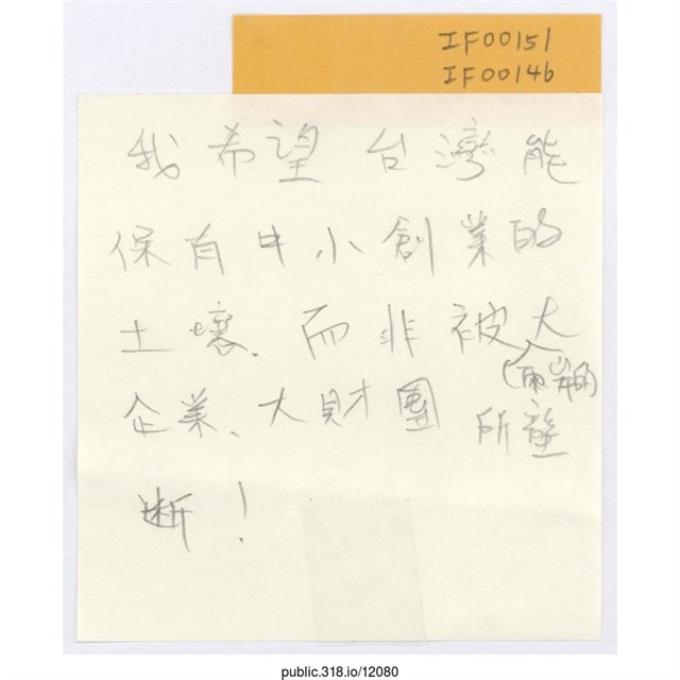 IF00151
IF00146
我希望台灣能
保有中小創業的
土壤、而非被大
(兩岸的)
企業、大財團 所壟
斷！
public.318.io/12080